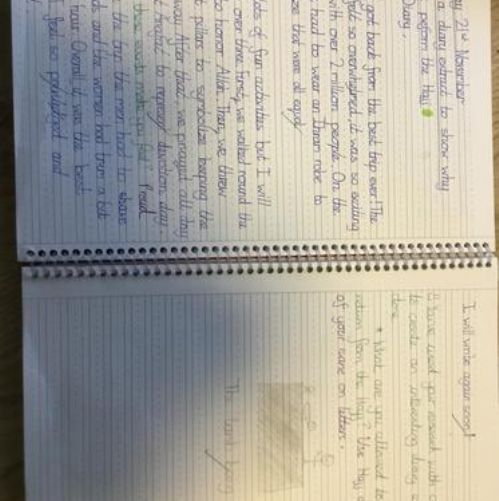 ay 21st November
a diary extract to show why
perform the Hajj
Diary,
got back from the best trip ever! The
felt so overwhelmed, it was so exciting
with over 2 million people. On the
, had to wear an Ihram robe to
that were all equal
lots of fun activities but I will
over three Firstly, we walked round the
to honor Allah. Then, we threw
at pillars to symbolize keeping the
away. After that, we prayed all day
t Arafat to represent devotion day.
these events make you feel? Proud
the trip the men had to shave
and the women had trim a bit
hair. Overall it was the best
I feel so privileged and
I will write again soon!
have used your research with
to create an interesting diary
done
* What are you allowed to
return from the Hajj? Use Hajj
of your name on letters.
The